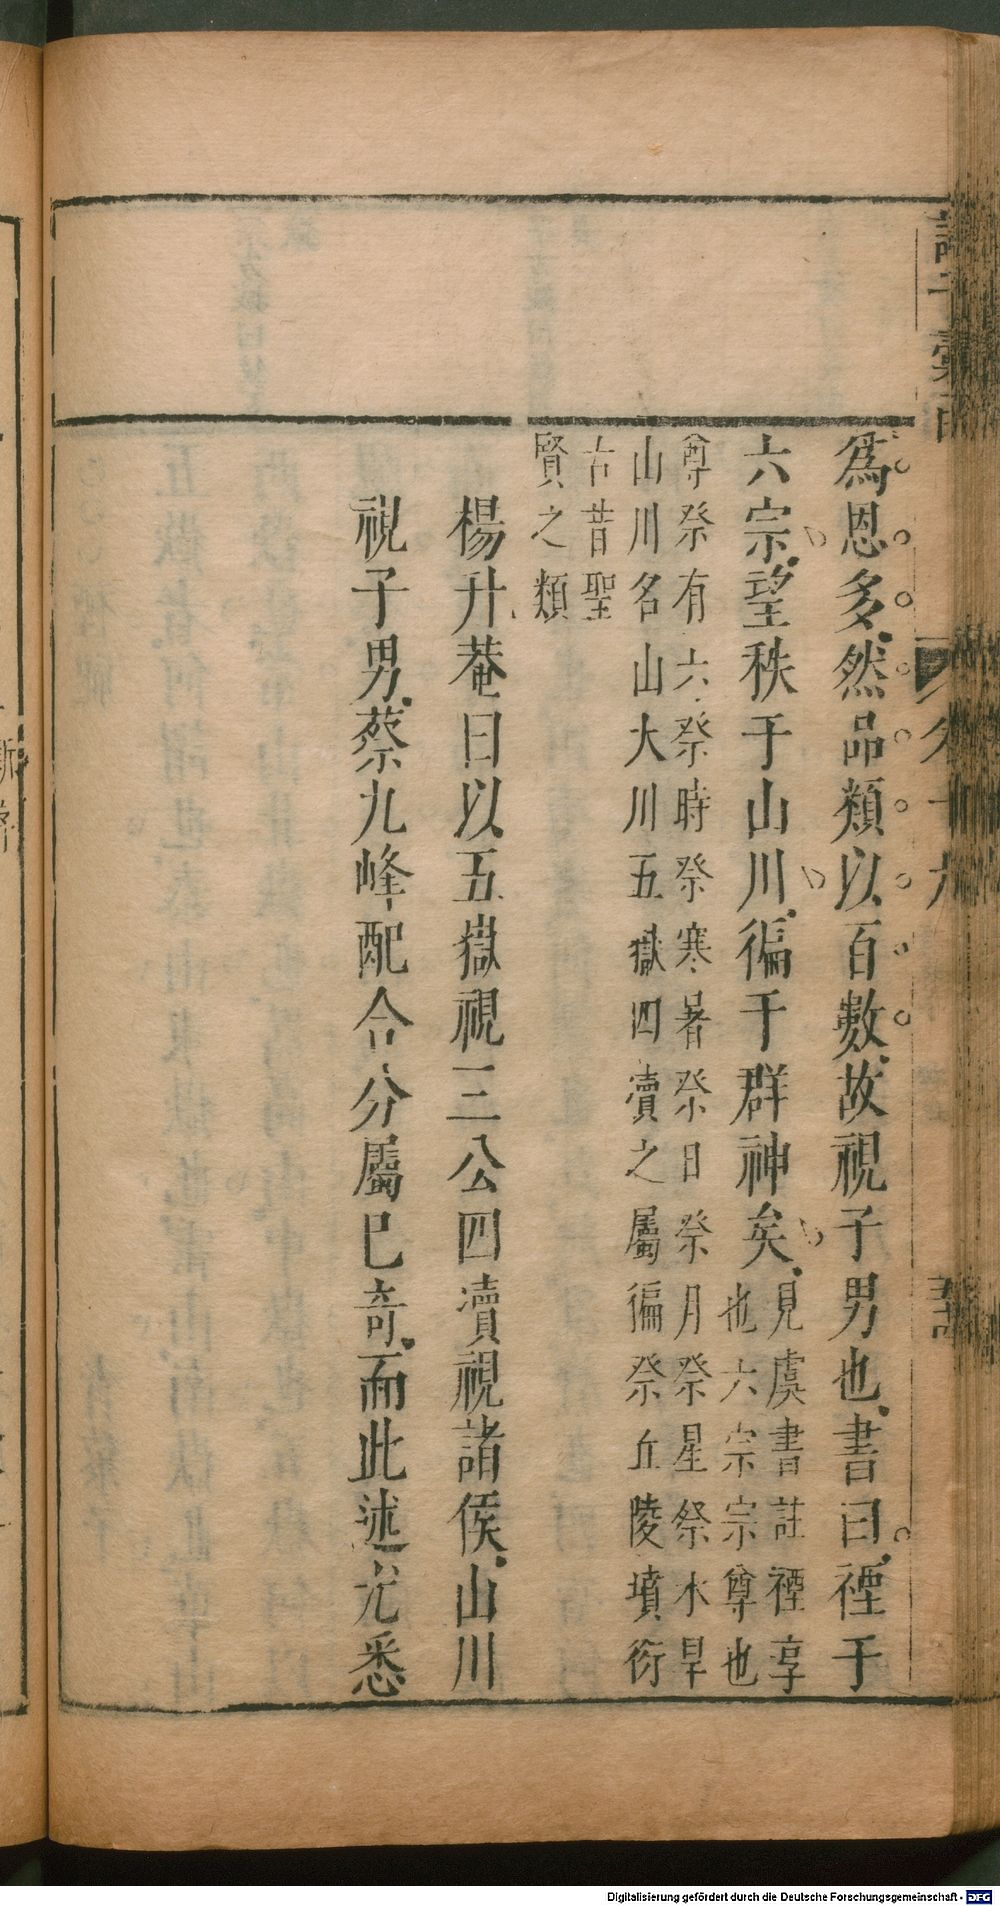 爲恩多然品類以百數故視子男也書曰禋于
六宗望秩于山川徧于群神矣
見虞書註禋享
也六宗宗尊也
尊祭有六祭時祭寒暑祭日祭月祭星祭水旱
山川名山大川五嶽四瀆之屬徧祭丘陵墳衍
古昔聖
賢之類
楊升菴曰以五嶽視三公四瀆視諸侯山川
視子男蔡九峰配合分屬已奇而此述尤悉
Digitalisierung gefördert durch die Deutsche Forschungsgemeinschaft - DFG